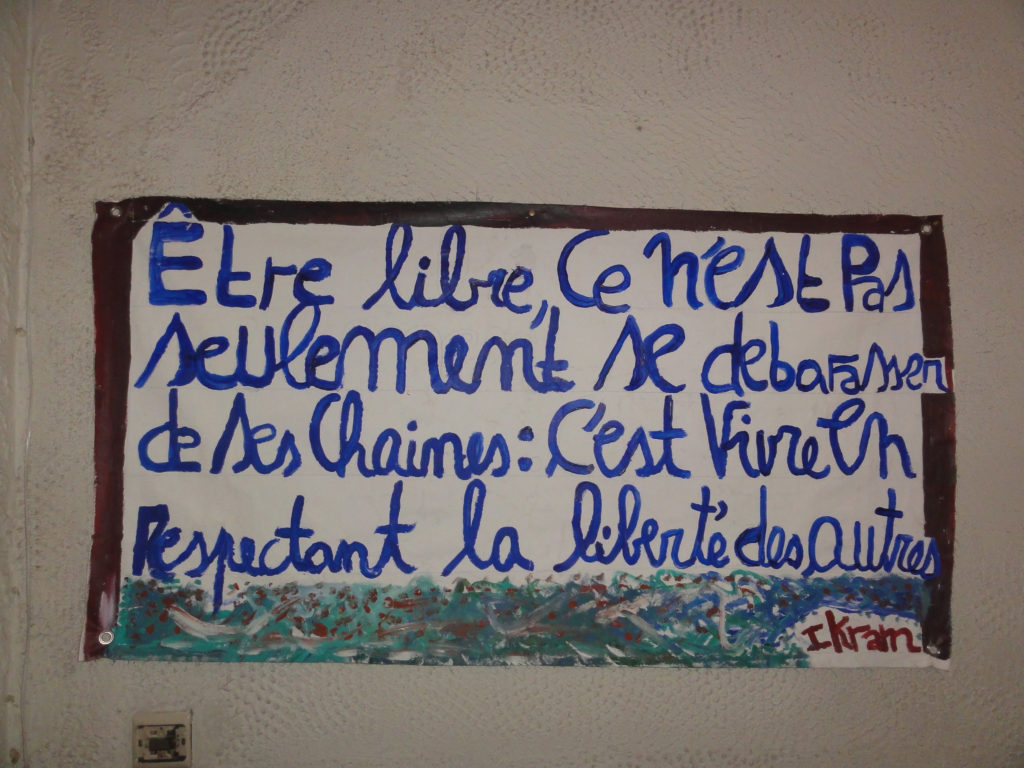 Être libre, Ce n'est Pas
seulement se debarasser
de ses Chaines: C'est Vivre En
Respectant la liberté des autres
IKram